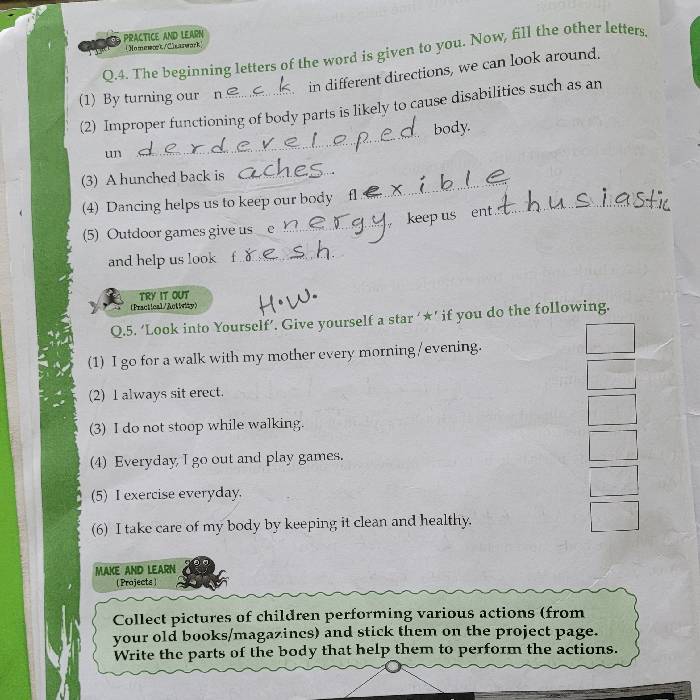 PRACTICE AND LEARN
(Homework/Classwork)
Q.4. The beginning letters of the word is given to you. Now, fill the other letters.
(1) By turning our neck in different directions, we can look around.
(2) Improper functioning of body parts is likely to cause disabilities such as an
un derdeveloped body.
(3) A hunched back is aches.
(4) Dancing helps us to keep our body flexible
(5) Outdoor games give us energy, keep us enthusiastic
and help us look fresh.
TRY IT OUT
(Practical/Activity)
H.W.
Q.5. 'Look into Yourself'. Give yourself a star '★' if you do the following.
(1) I go for a walk with my mother every morning/evening.
(2) I always sit erect.
(3) I do not stoop while walking.
(4) Everyday, I go out and play games.
(5) I exercise everyday.
(6) I take care of my body by keeping it clean and healthy.
MAKE AND LEARN
(Projects)
Collect pictures of children performing various actions (from
your old books/magazines) and stick them on the project page.
Write the parts of the body that help them to perform the actions.